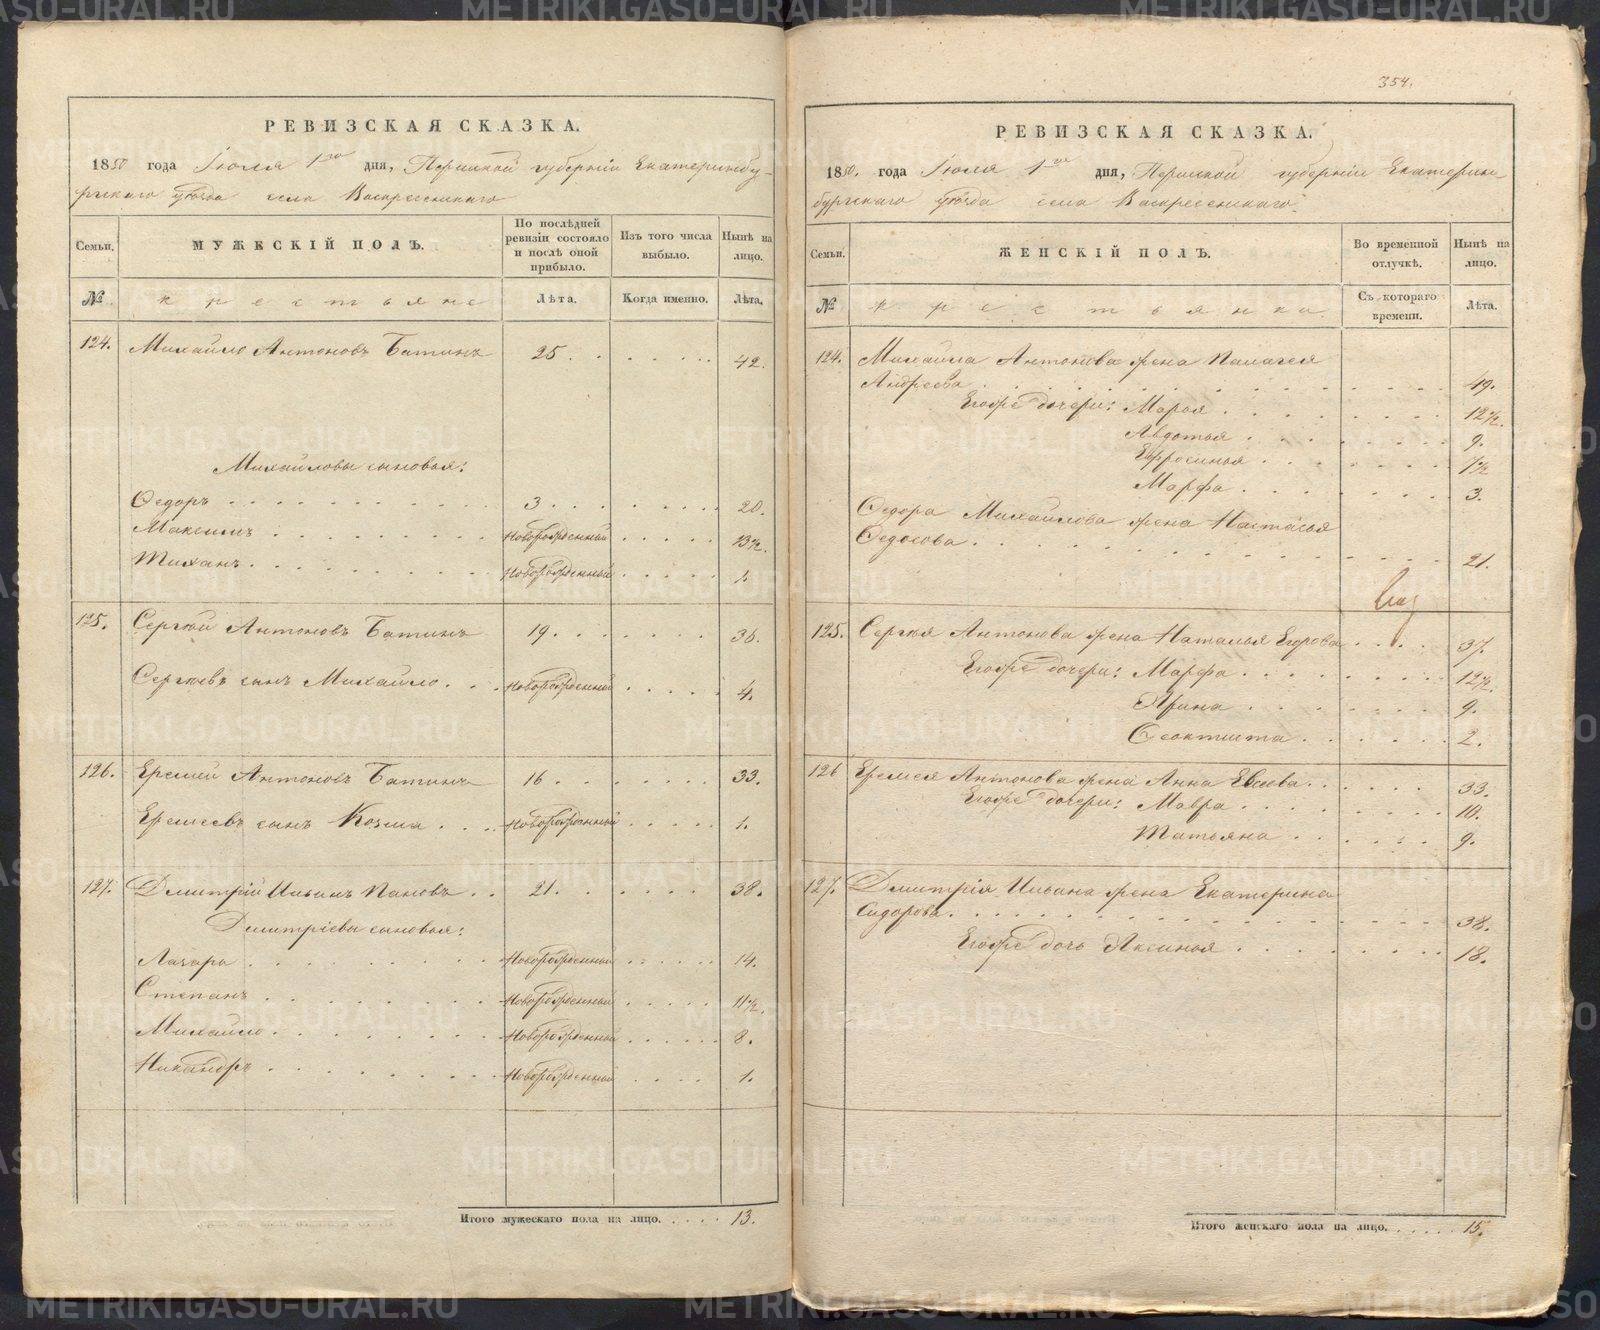 РЕВИЗСКАЯ СКАЗКА.
1850 года Іюля 1го дня, Пермской губерніи Екатеринбу-
ргскаго уѣзда села Воскресенскаго
Семьи. МУЖЕСКІЙ ПОЛЪ. По послѣдней ревизіи состояло и послѣ оной прибыло. Изъ того числа выбыло. Нынѣ на лицо.
№ крестьяне Лѣта. Когда именно. Лѣта.
124. Михайло Антоновъ Батинъ 25. 42.
Михайловы сыновья:
Федоръ 3. 20.
Максимъ новорожденный 13½.
Тиханъ новорожденный 1.
125. Сергѣй Антоновъ Батинъ 19. 36.
Сергѣевъ сынъ Михайло. новорожденный 4.
126. Еремей Антоновъ Батинъ 16. 33.
Еремеевъ сынъ Козма новорожденный 1.
127. Дмитрій Ильинъ Пановъ 21. 38.
Дмитріевы сыновья:
Лазарь новорожденный 14.
Степанъ новорожденный 11½.
Михайло новорожденный 8.
Никандръ новорожденный 1.
Итого мужескаго пола на лицо. 13.
354.
РЕВИЗСКАЯ СКАЗКА.
1850. года Іюля 1го дня, Пермской губерніи Екатерин-
бургскаго уѣзда села Воскресенскаго.
Семьи. ЖЕНСКІЙ ПОЛЪ. Во временной отлучкѣ. Нынѣ на лицо.
№ крестьянки. Съ котораго времени. Лѣта.
124. Михайла Антонова жена Палагея
Андреева 49.
Егожъ дочери: Марья 12½.
Авдотья 9.
Ефросинья 7½
Марфа 3.
Федора Михайлова жена Настасья
Федосова 21.
125. Сергѣя Антонова жена Наталья Егорова 37.
Егожъ дочери: Марфа 12½.
Ярина 9.
Феоктиста 2.
126 Еремея Антонова жена Анна Евсеева 33.
Егожъ дочери: Мавра 10.
Татьяна 9.
127. Дмитрія Ильина жена Екатерина
Сидорова 38.
Егожъ дочь Аксинья 18.
Итого женскаго пола на лицо. 15.
METRIKI.GASO-URAL.RU